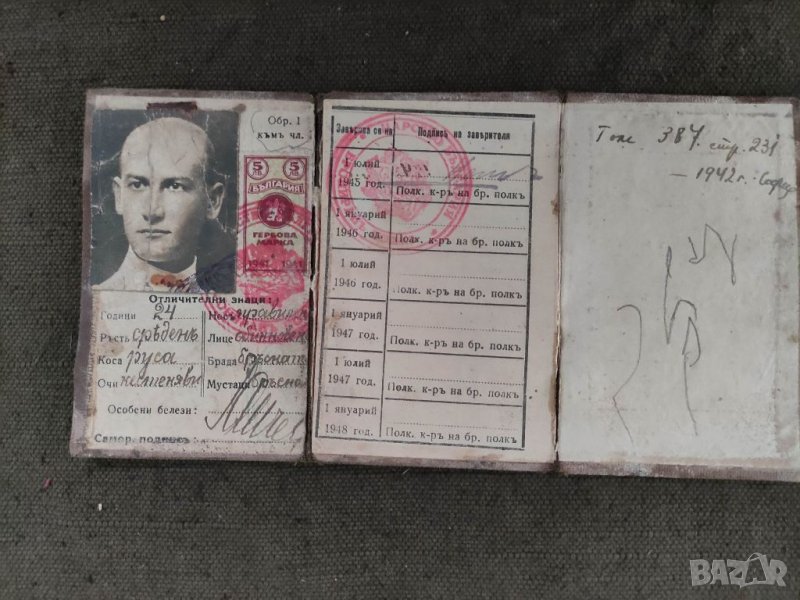 Обр. 1
къмъ чл.
5 5
ЛВ ЛВ
БЪЛГАРИЯ
ГЕРБОВА
МАРКА
1941 1941
Отличителни знаци:
Години 24
Носъ правиленъ
Ръстъ срѣденъ
Лице
Коса руса
Брада бръсната
Очи кестеняви
Мустаци
Особени белези:
Самор. подпись
Заверява се на
Подпись на заверителя
1 юлий
1945 год.
Полк. к-ръ на бр. полкъ
1 януарий
1946 год.
Полк. к-ръ на бр. полкъ
1 юлий
1946 год.
Полк. к-ръ на бр. полкъ
1 януарий
1947 год.
Полк. к-ръ на бр. полкъ
1 юлий
1947 год.
Полк. к-ръ на бр. полкъ
1 януарий
1948 год.
Полк. к-ръ на бр. полкъ
387 стр. 231
— 1942 г.
BAZAR